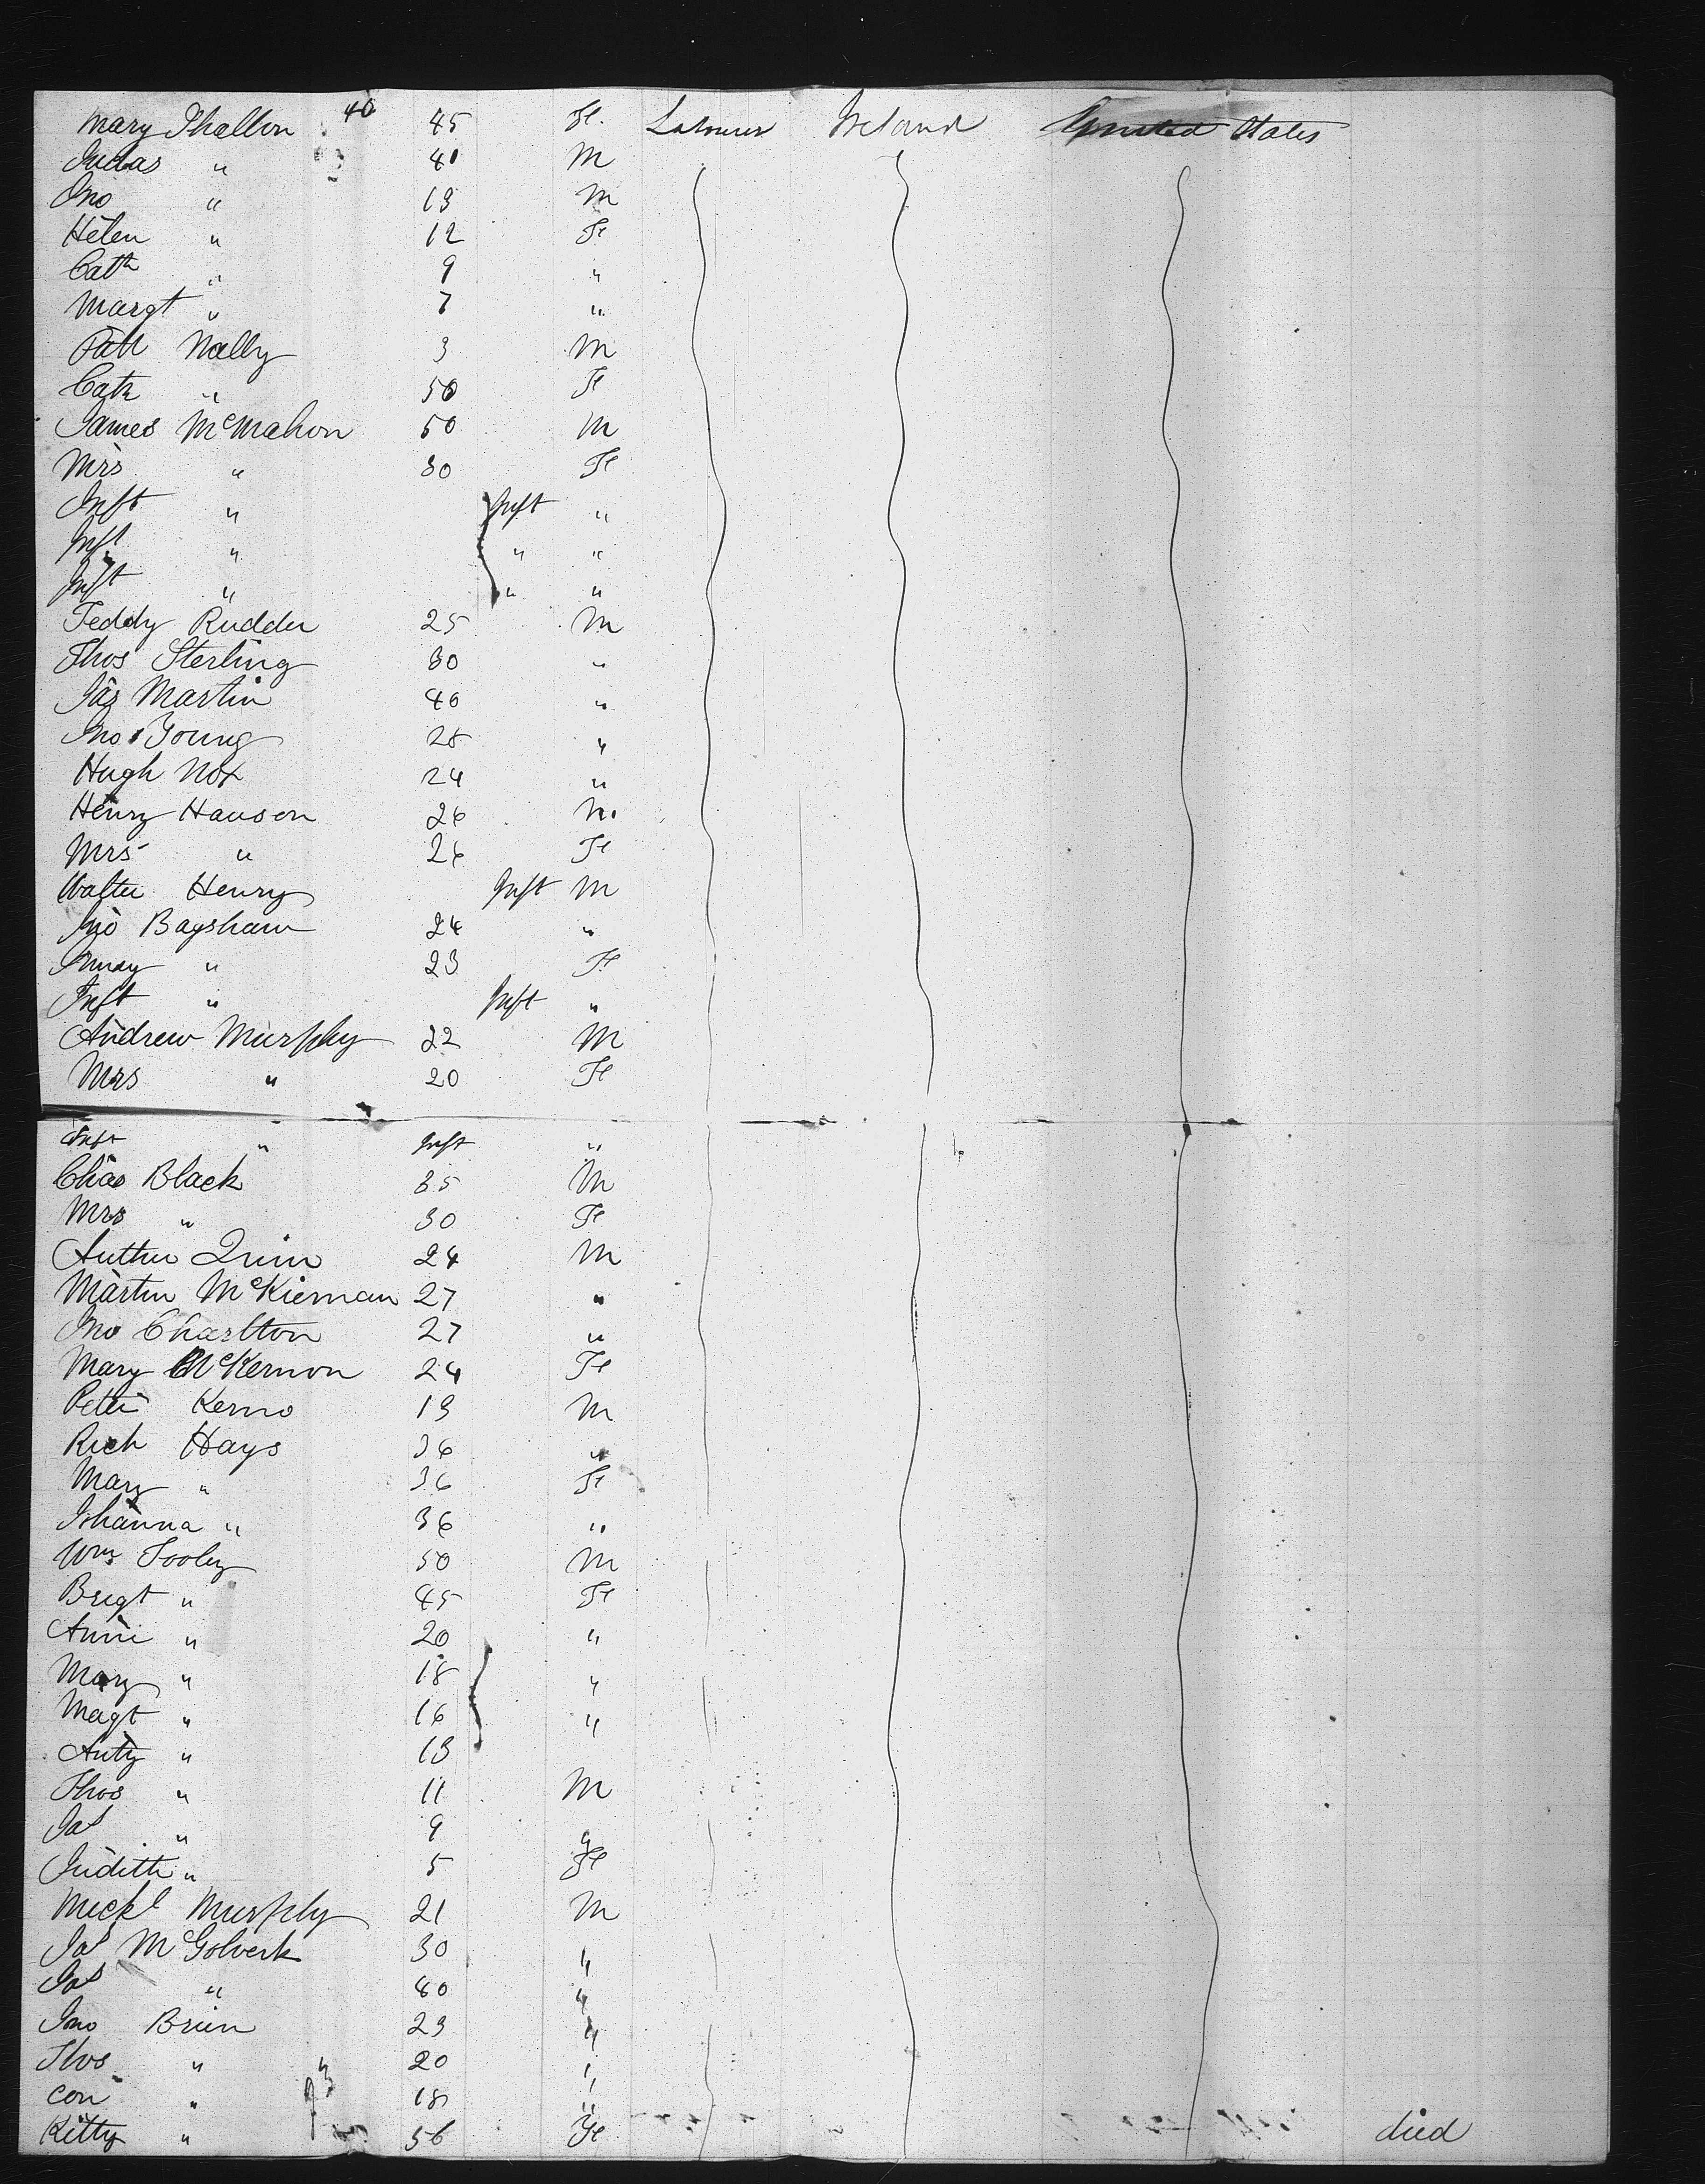 Mary Phallon 40 45 Fe. Labourer Ireland United States
Judas " 40 M
Jno " 13 M
Helen " 12 Fe
Cath " 9 "
Margt " 7 "
Patt Nally 3 M
Cath " 50 Fe
James McMahon 50 M
Mrs " 30 Fe
Inft " Inft "
Inft " " "
Inft " " "
Teddy Rudder 25 M
Thos Sterling 30 "
Jas Martin 40 "
Jno Young 28 "
Hugh Nox 24 "
Henry Hanson 26 M
Mrs " 26 Fe
Walter Henry Inft M
Jno Bagshaw 24 "
" 23 Fe
Inft " Inft "
Andrew Murphy 22 M
Mrs " 20 Fe
Inft " Inft "
Chas Black 35 M
Mrs " 30 Fe
Arthur Quin 24 M
Martin McKiernan 27 "
Jno Charlton 27 "
Mary McKernon 24 Fe
Peter Kerno 19 M
Rich Hays 36 "
Mary " 36 Fe
Johanna " 36 "
Wm Tooley 50 M
Brigt " 45 Fe
Anne " 20 "
Mary " 18 "
Magt " 16 "
Anty " 13
Thos " 11 M
Jas " 9 "
Judith " 5 Fe
Michl Murphy 21 M
Jas McGolverk 30 "
Jas " 40 "
Jno Brien 23 "
Thos " 20 "
Con " 18 "
Kitty " 56 Fe died